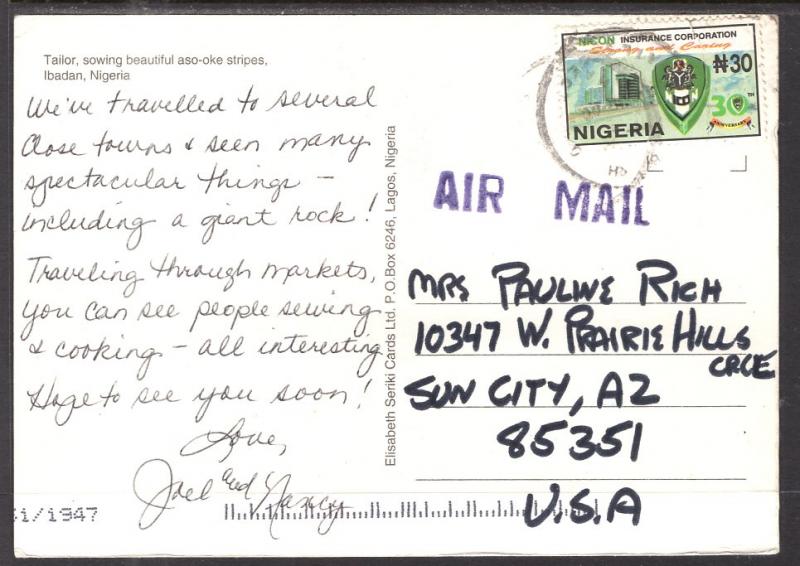 Tailor, sowing beautiful aso-oke stripes,
Ibadan, Nigeria
We've travelled to several
close towns & seen many
spectacular things –
including a giant rock!
Traveling through markets,
you can see people sewing
& cooking – all interesting
Hope to see you soon!
Love,
Joel and Nancy
i/1947
Elisabeth Seriki Cards Ltd. P.O.Box 6246, Lagos, Nigeria
NICON INSURANCE CORPORATION
Strong and Caring
₦30
30TH
ANNIVERSARY
NIGERIA
AIR MAIL
MRS PAULINE RICH
10347 W. PRAIRIE HILLS
CRCLE
SUN CITY, AZ
85351
U.S.A